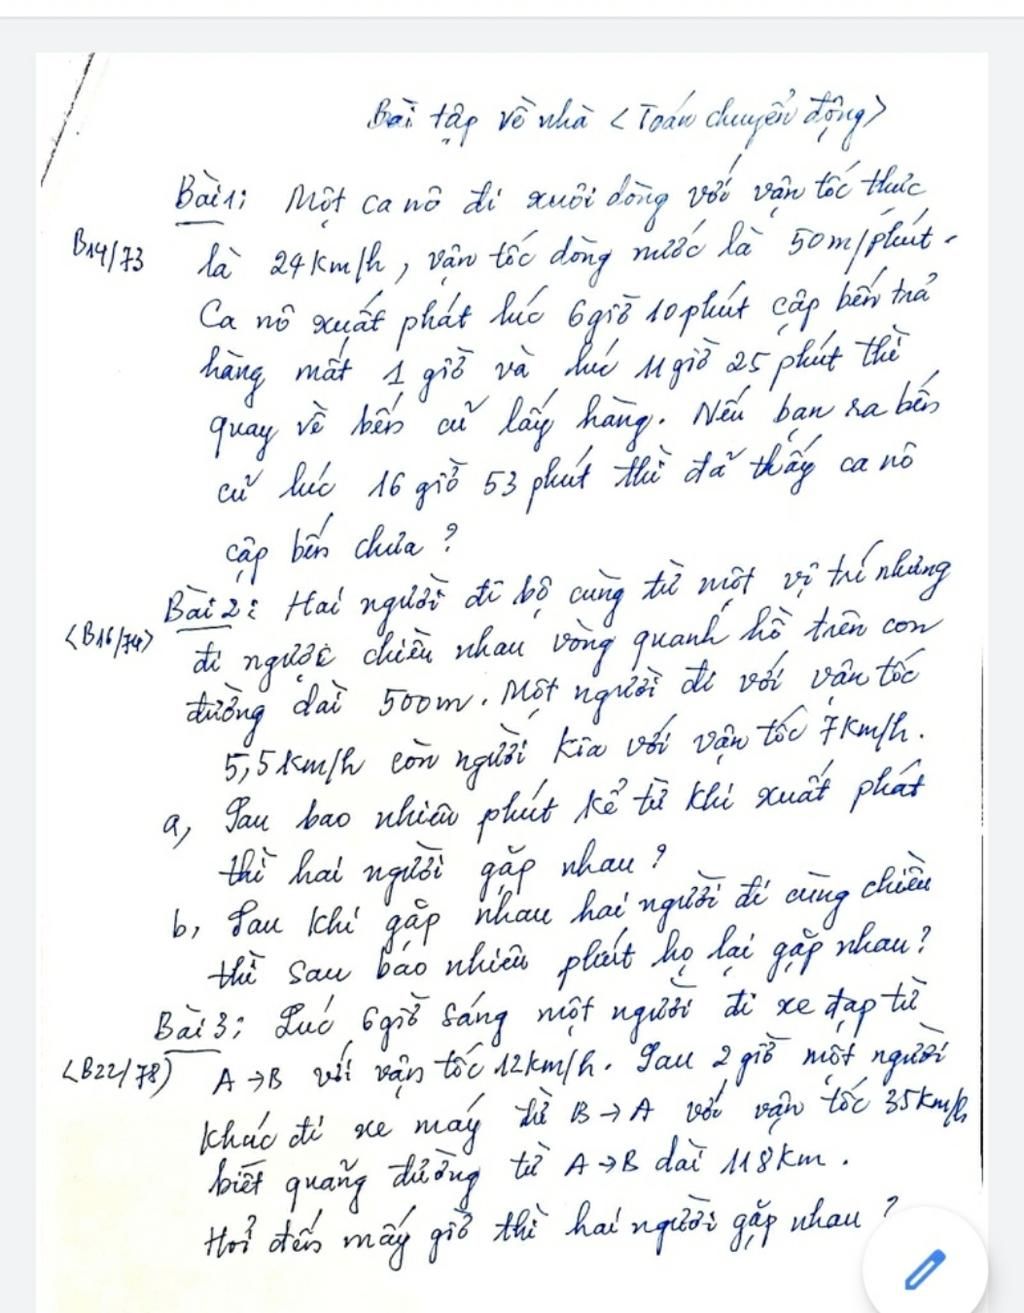 Bài tập về nhà <Toán chuyển động>
Bài 1: Một ca nô đi xuôi dòng với vận tốc thực
B14/73
là 24km/h, vận tốc dòng nước là 50m/phút.
Ca nô xuất phát lúc 6 giờ 10 phút cập bến trả
hàng mất 1 giờ và lúc 11 giờ 25 phút thì
quay về bến cũ lấy hàng. Nếu bạn ra bến
cũ lúc 16 giờ 53 phút thì đã thấy ca nô
cập bến chưa?
Bài 2: Hai người đi bộ cùng từ một vị trí nhưng
<B16/74>
đi ngược chiều nhau vòng quanh hồ trên con
đường dài 500m. Một người đi với vận tốc
5,5km/h còn người kia với vận tốc 7km/h.
a, Sau bao nhiêu phút kể từ khi xuất phát
thì hai người gặp nhau?
b, Sau khi gặp nhau hai người đi cùng chiều
thì sau bao nhiêu phút họ lại gặp nhau?
Bài 3: Lúc 6 giờ sáng một người đi xe đạp từ
<B22/78)
A→B với vận tốc 12km/h. Sau 2 giờ một người
khác đi xe máy từ B→A với vận tốc 35km/h
biết quãng đường từ A→B dài 118km.
Hỏi đến mấy giờ thì hai người gặp nhau?